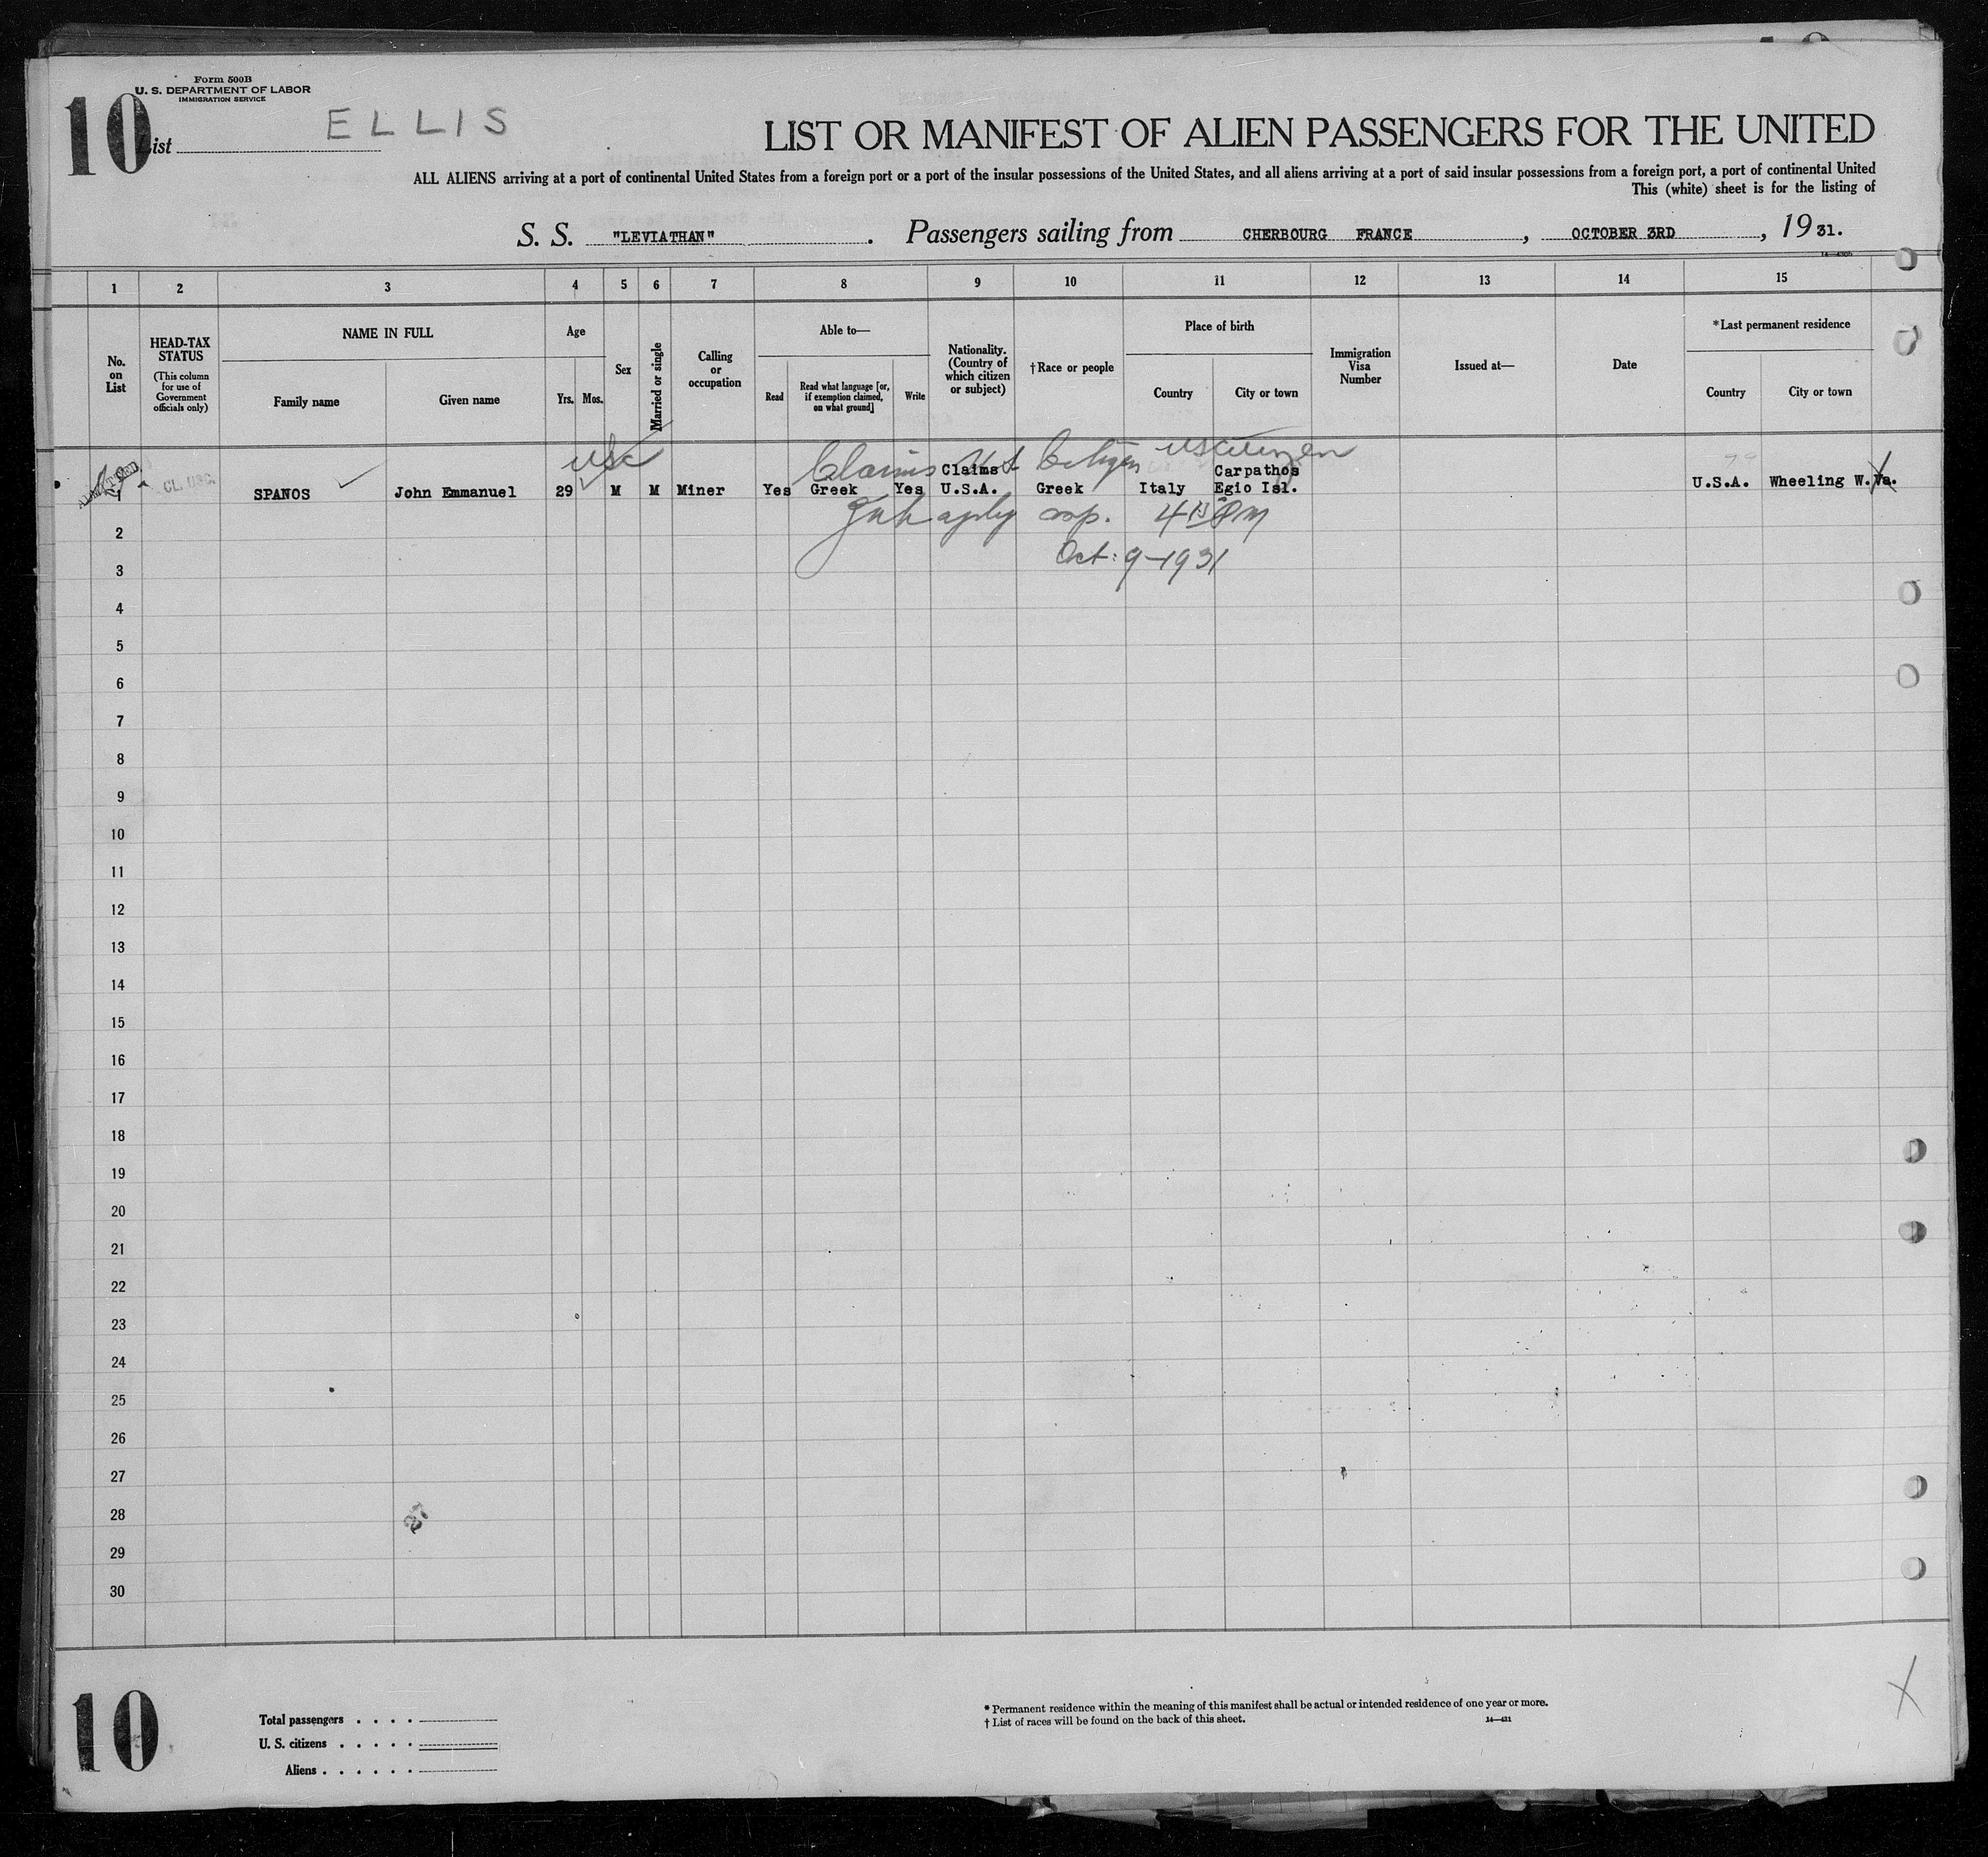 Form 500B
U. S. DEPARTMENT OF LABOR
IMMIGRATION SERVICE
10
List
ELLIS
LIST OR MANIFEST OF ALIEN PASSENGERS FOR THE UNITED
ALL ALIENS arriving at a port of continental United States from a foreign port or a port of the insular possessions of the United States, and all aliens arriving at a port of said insular possessions from a foreign port, a port of continental United
This (white) sheet is for the listing of
S. S. "LEVIATHAN". Passengers sailing from CHERBOURG FRANCE, OCTOBER 3RD, 1931.
1 2 3 4 5 6 7 8 9 10 11 12 13 14 15
No. on List
HEAD-TAX STATUS
(This column for use of Government officials only)
NAME IN FULL
Family name Given name
Age
Yrs. Mos.
Sex
Married or single
Calling or occupation
Able to—
Read
Read what language [or, if exemption claimed, on what ground]
Write
Nationality. (Country of which citizen or subject)
†Race or people
Place of birth
Country City or town
Immigration Visa Number
Issued at—
Date
*Last permanent residence
Country City or town
usc
Claims U S Citizen US Citizen
Claims Carpathos
1 CL. USC. SPANOS John Emmanuel 29 M M Miner Yes Greek Yes U.S.A. Greek Italy Egio Isl. U.S.A. Wheeling W.Va.
2
Oct: 9-1931
3
4
5
6
7
8
9
10
11
12
13
14
15
16
17
18
19
20
21
22
23
24
25
26
27
28
29
30
10
Total passengers . . . .
U. S. citizens . . . . .
Aliens . . . . . .
* Permanent residence within the meaning of this manifest shall be actual or intended residence of one year or more.
† List of races will be found on the back of this sheet.
14—431